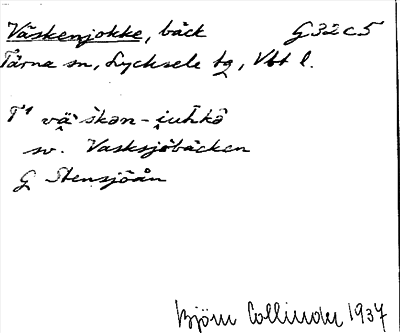 Väskenjokke, bäck G32c5
Tärna sn, Lycksele tg, Vbt l.
sv. Vasksjöbäcken
G Stensjöån
Björn Collinder 1937